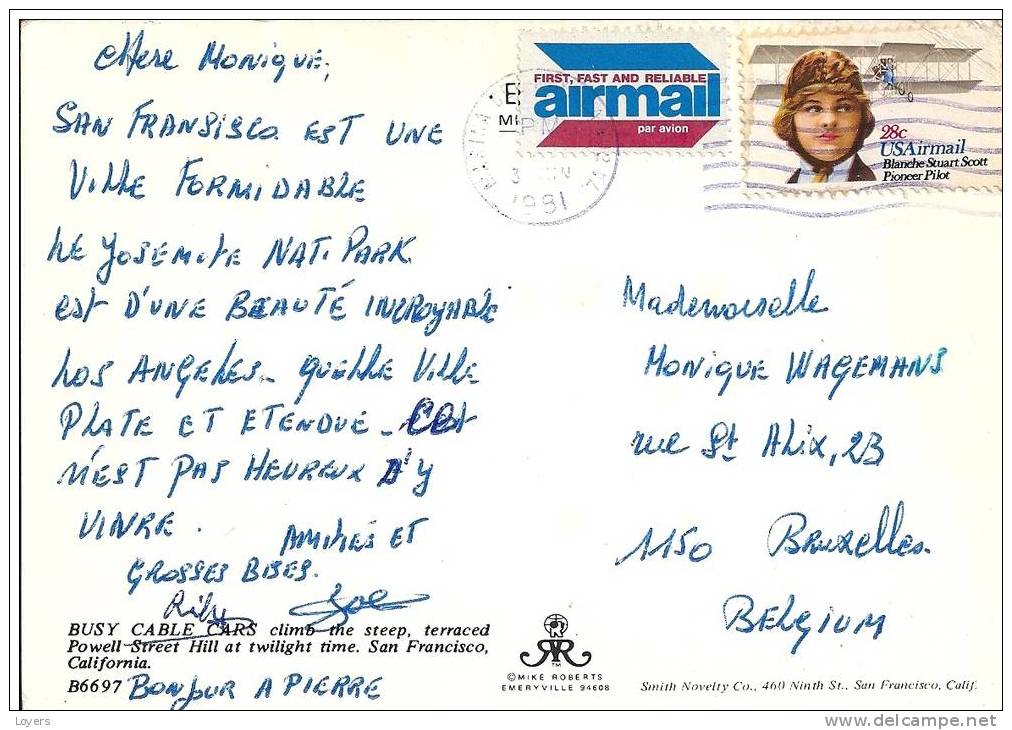 CHERE MONIQUE,
SAN FRANSISCO EST UNE
VILLE FORMIDABLE
LE YOSEMITE NAT. PARK
EST D'UNE BEAUTÉ INCROYABLE
LOS ANGELES - QUELLE VILLE
PLATE ET ETENDUE -
N'EST PAS HEUREUX D'Y
VIVRE.
AMITIÉS ET
GROSSES BISES.
BUSY CABLE CARS climb the steep, terraced
Powell Street Hill at twilight time. San Francisco,
California.
B6697 BONJOUR A PIERRE
FIRST, FAST AND RELIABLE
airmail
par avion
PM
3
1981
28c
USAirmail
Blanche Stuart Scott
Pioneer Pilot
Mademoiselle
MONIQUE WAGEMANS
rue St ALIX, 23
1150 BRUXELLES.
BELGIUM
TM
©MIKE ROBERTS
EMERYVILLE 94608
Smith Novelty Co., 460 Ninth St., San Francisco, Calif.
Loyers
www.delcampe.net